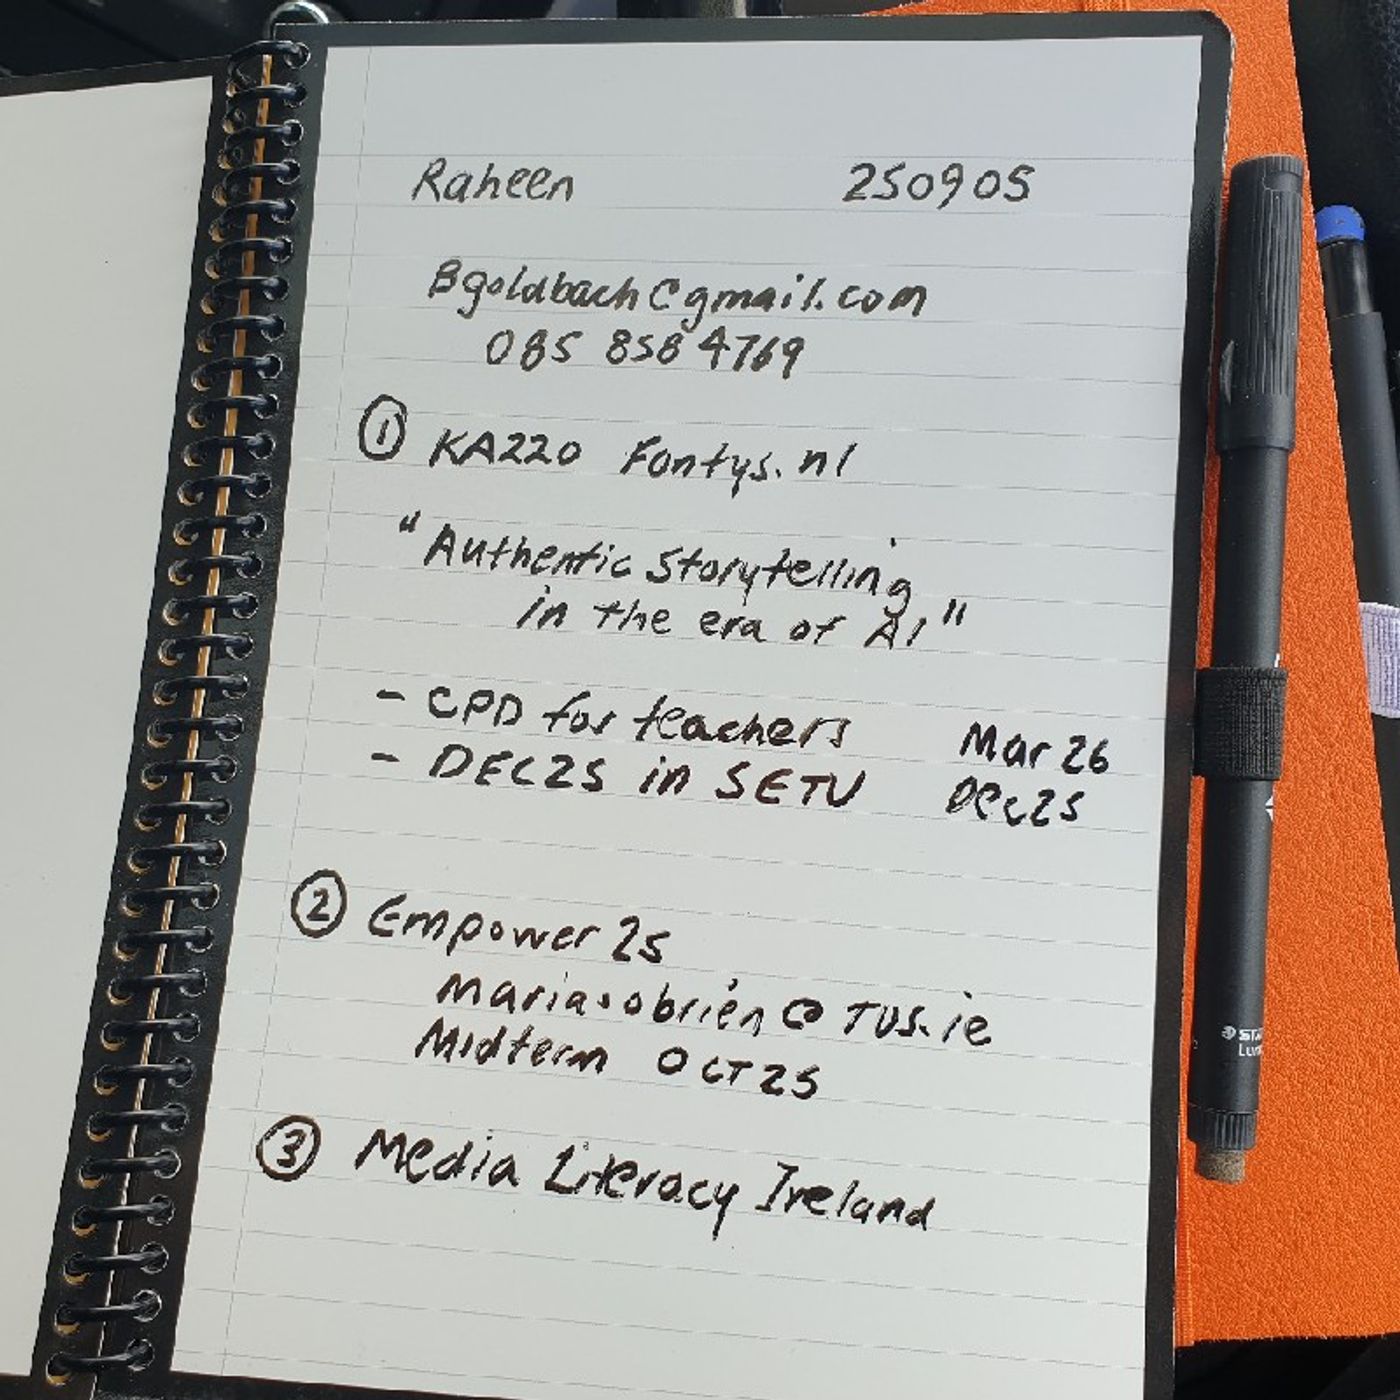 Raheen 250905
Bgoldbach@gmail.com
085 858 4769
① KA220 Fontys.nl
"Authentic Storytelling
in the era of AI"
- CPD for teachers Mar 26
- DEC25 in SETU Dec25
② Empower 25
maria.obrien@TUS.ie
Midterm OCT25
③ Media Literacy Ireland